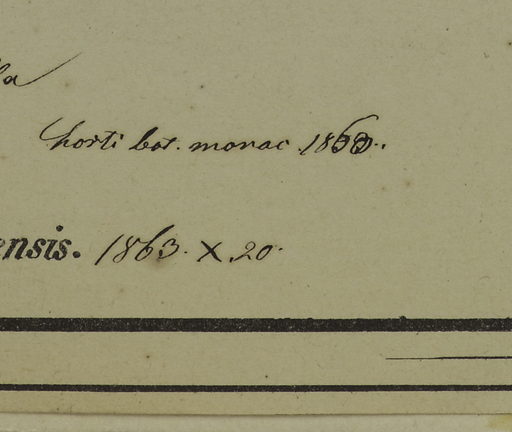 la
horti bot. monac. 1863.
ensis. 1863. X. 20.